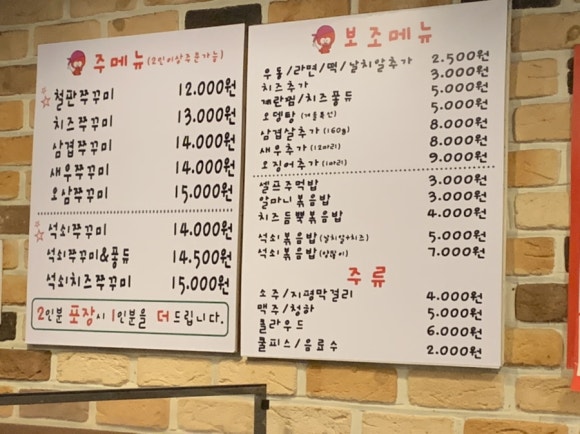 주메뉴 (2인이상주문가능)
☆철판쭈꾸미 12.000원
치즈쭈꾸미 13.000원
삼겹쭈꾸미 14.000원
새우쭈꾸미 14.000원
오삼쭈꾸미 15.000원
☆석쇠쭈꾸미 14.000원
석쇠쭈꾸미&퐁듀 14.500원
석쇠치즈쭈꾸미 15.000원
2인분 포장시 1인분을 더 드립니다.
보조메뉴
우동/라면/떡/날치알추가 2.500원
치즈추가 3.000원
계란찜/치즈퐁듀 5.000원
오뎅탕 5.000원
삼겹살추가 (160g) 8.000원
새우추가 (12마리) 8.000원
오징어추가 (1마리) 9.000원
셀프주먹밥 3.000원
알마니볶음밥 3.000원
치즈듬뿍볶음밥 4.000원
석쇠볶음밥 (날치알+치즈) 5.000원
석쇠볶음밥 7.000원
주류
소주/지평막걸리 4.000원
맥주/청하 5.000원
클라우드 6.000원
쿨피스/음료수 2.000원